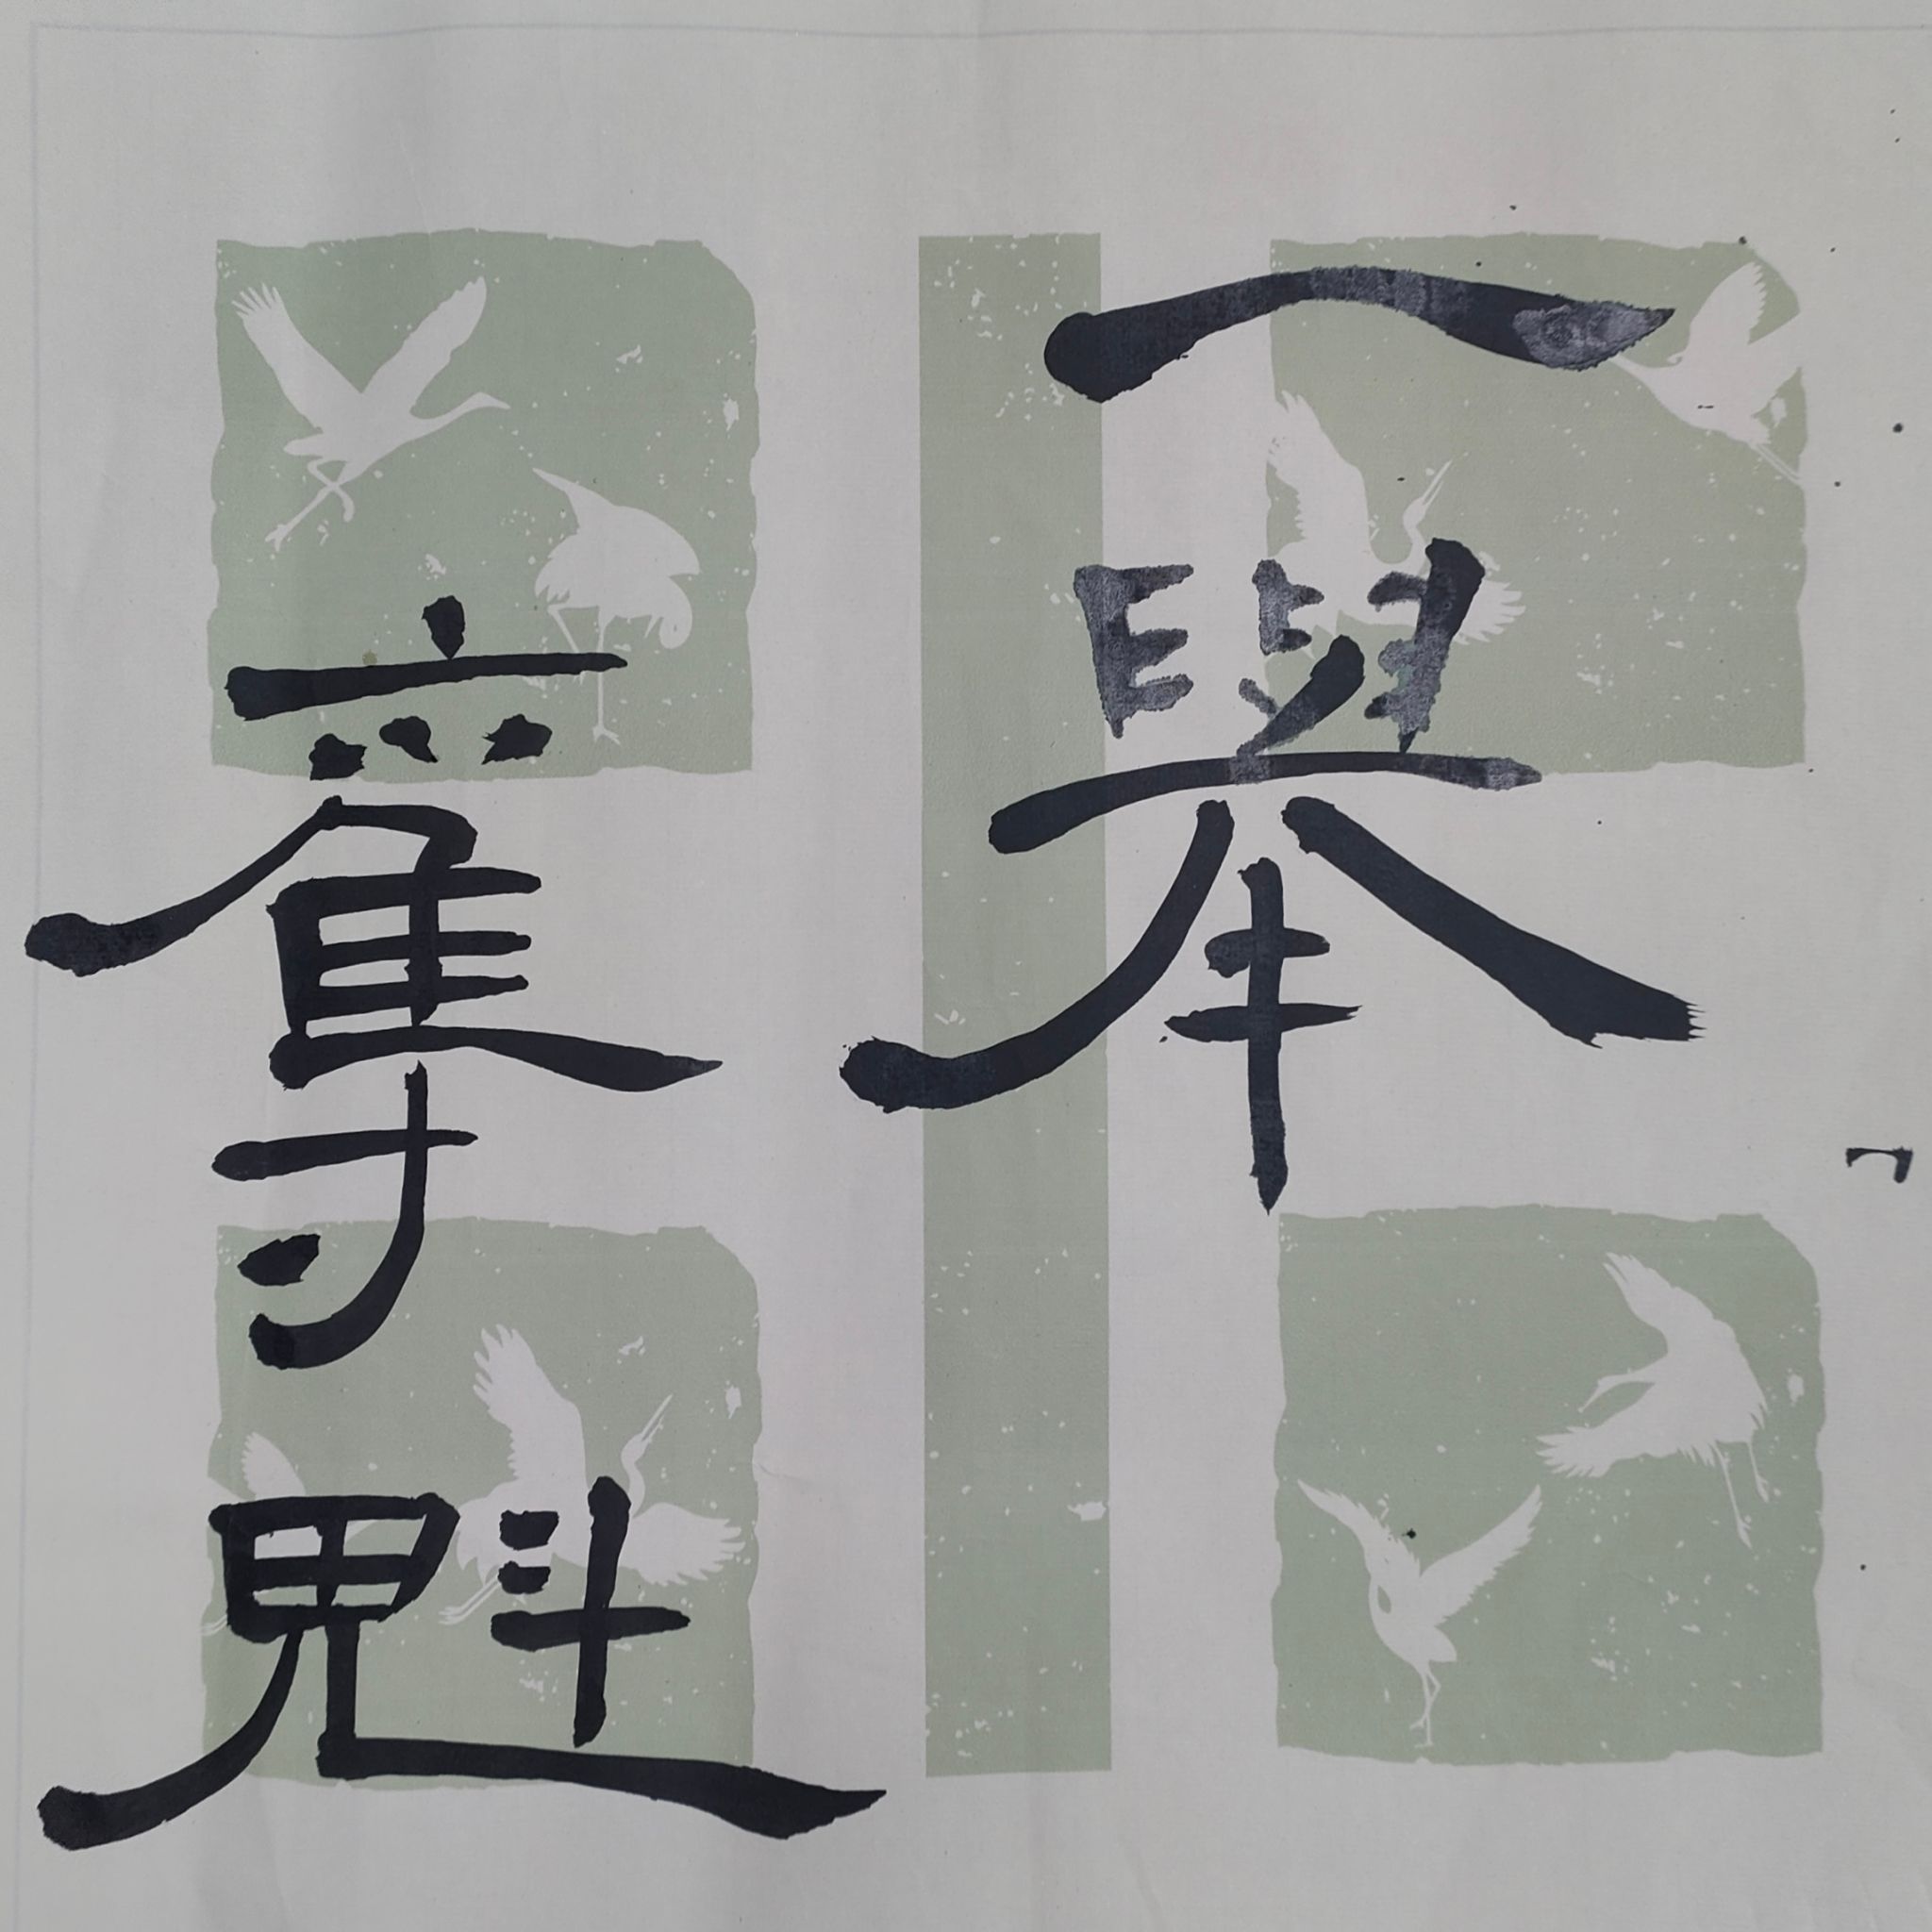 一舉
奪魁